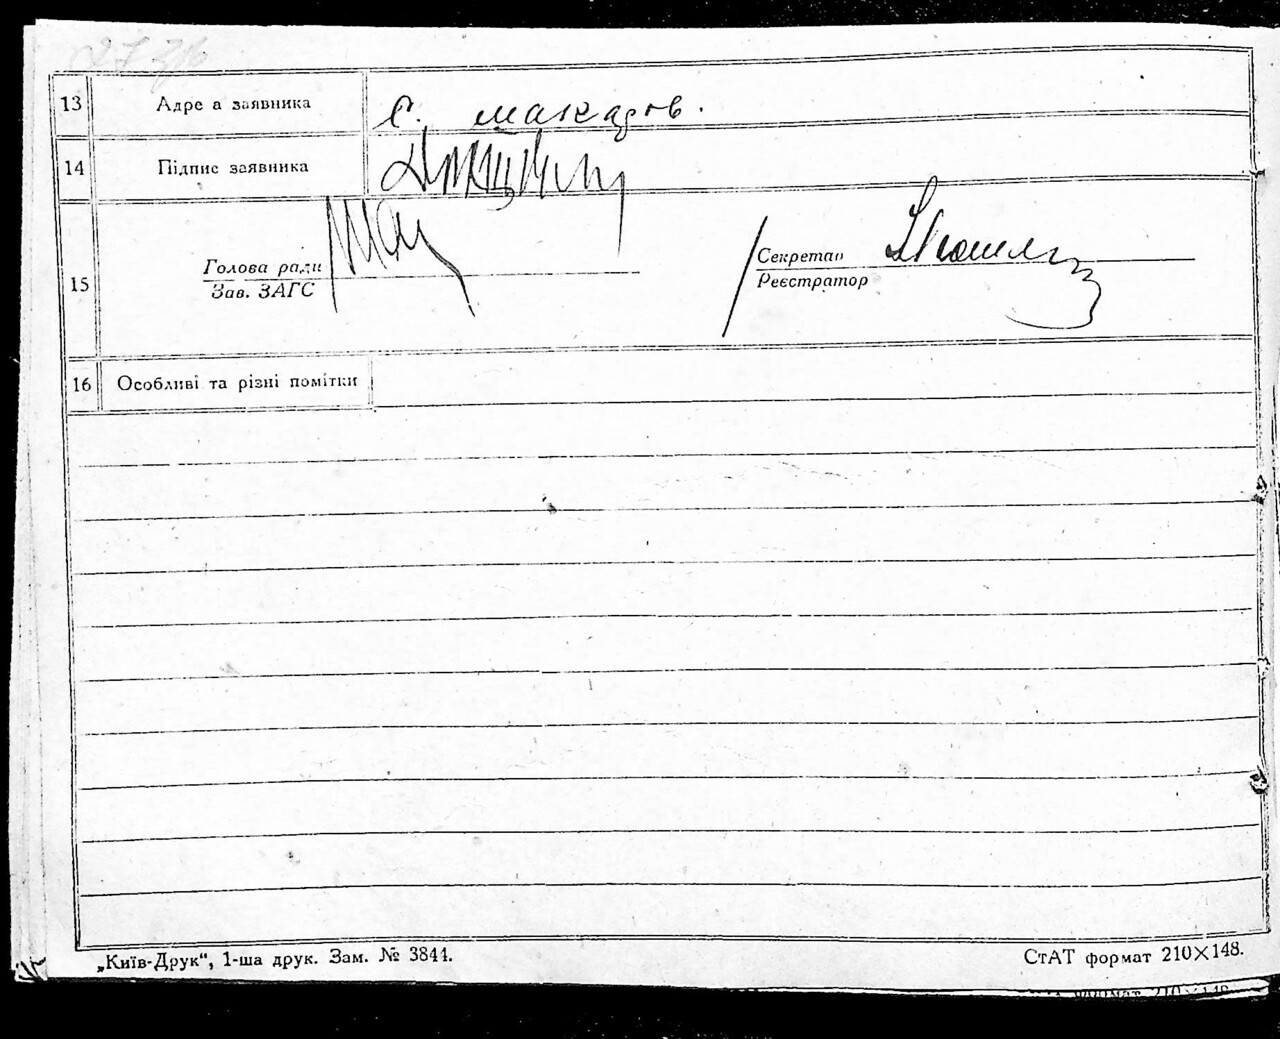 13 Адре а заявника с. макаров.
14 Підпис заявника
15 Голова ради Секретар
Зав. ЗАГС Реєстратор
16 Особливі та різні помітки
„Київ-Друк“, 1-ша друк. Зам. № 3844. СтАТ формат 210×148.